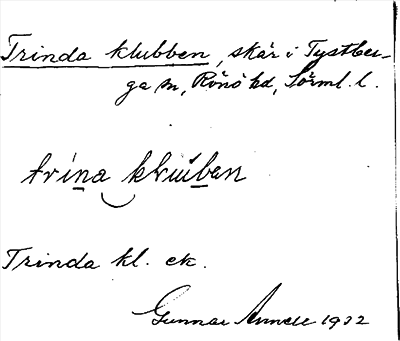 Trinda klubben, skär i Tystber-
ga sn, Rönö hd, Sörml. l.
trina klubben
Trinda kl. ek.
Gunnar Annell 1932